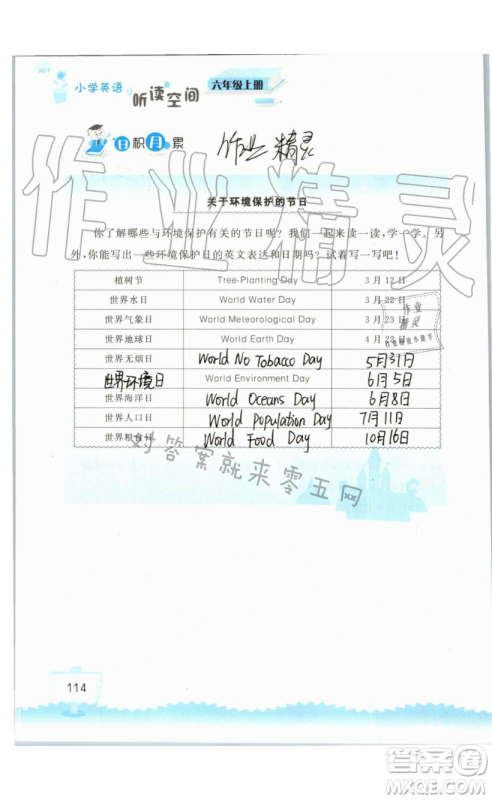 小学英语
听读空间
六年级上册
日积月累
作业精灵
关于环境保护的节日
你了解哪些与环境保护有关的节日呢？我们一起来读一读，学一学。另
外，你能写出一些环境保护日的英文表达和日期吗？试着写一写吧！
植树节 Tree-Planting Day 3 月 12 日
世界水日 World Water Day 3 月 22 日
世界气象日 World Meteorological Day 3 月 23 日
世界地球日 World Earth Day 4 月 22 日
世界无烟日 World No Tobacco Day 5月31日
世界环境日 World Environment Day 6月5日
世界海洋日 World Oceans Day 6月8日
世界人口日 World Population Day 7月11日
世界粮食日 World Food Day 10月16日
对答案就来零五网
作业精灵
作业
精灵
114
答案圈
MXQE.COM